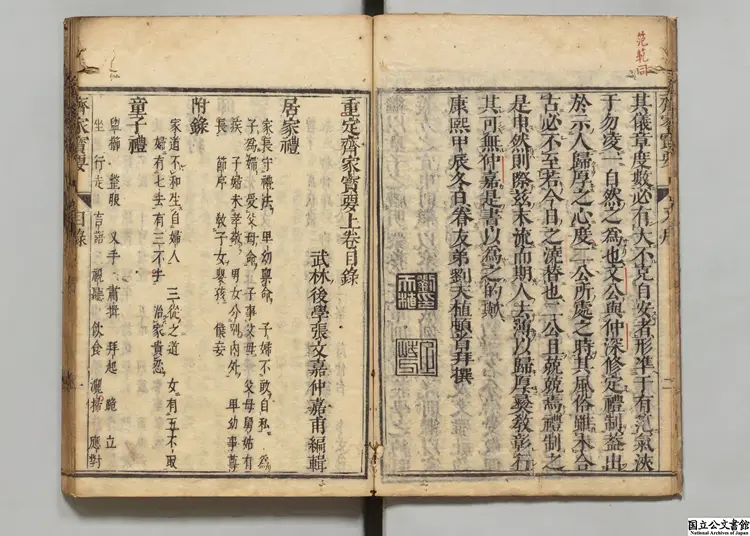 范範同
其儀章度數必有大不克自安者形準于有范氣浹
于勿凌一自然之為也文公與仲深修定禮制葢出
於示人歸厚之心度二公所處之時其風俗雖未合
古必不至若今日之澆替也二公且兢兢焉禮制之
是申然則際兹末流而期人去薄以歸厚彛敎彰行
其可無仲嘉是書以為之的歟
康熙甲辰冬日眷友弟劉天植頓首拜撰
齊家寶要
文序
二
重定齊家寶要上卷目錄
武林後學張文嘉仲嘉甫編輯
居家禮
家長守禮法 卑幼稟命 子婦不敢自私 為
子為婦 愛父母命 子事父母 父母舅姑有
疾 子婦未孝敬 男女分別內外 卑幼事尊
長 節序 敎子女 嬰孩 僕妾
附錄
家道不和生自婦人 三從之道 女有五不取
婦有七去有三不去 治家貴忍
童子禮
盥櫛 整服 叉手 肅揖 拜起 跪 立
坐 行走 言語 視聽 飲食 灑掃 應對
齊家寶要
目錄
一
国立公文書館
National Archives of Japan